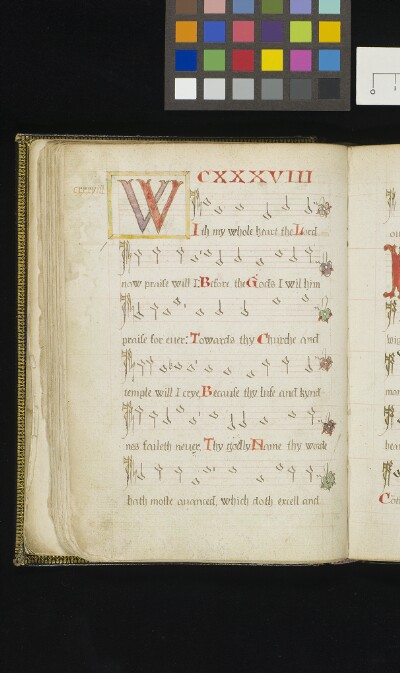 CXXXVIII
cxxxviii
With my whole heart the Lord
now praise will I: Before the Gods I wil him
praise for ever: Towards thy Churche and
temple will I crye, Because thy luse and kynd-
nes faileth never, Thy godly Name thy worde
hath moste avanced, which doth excell and